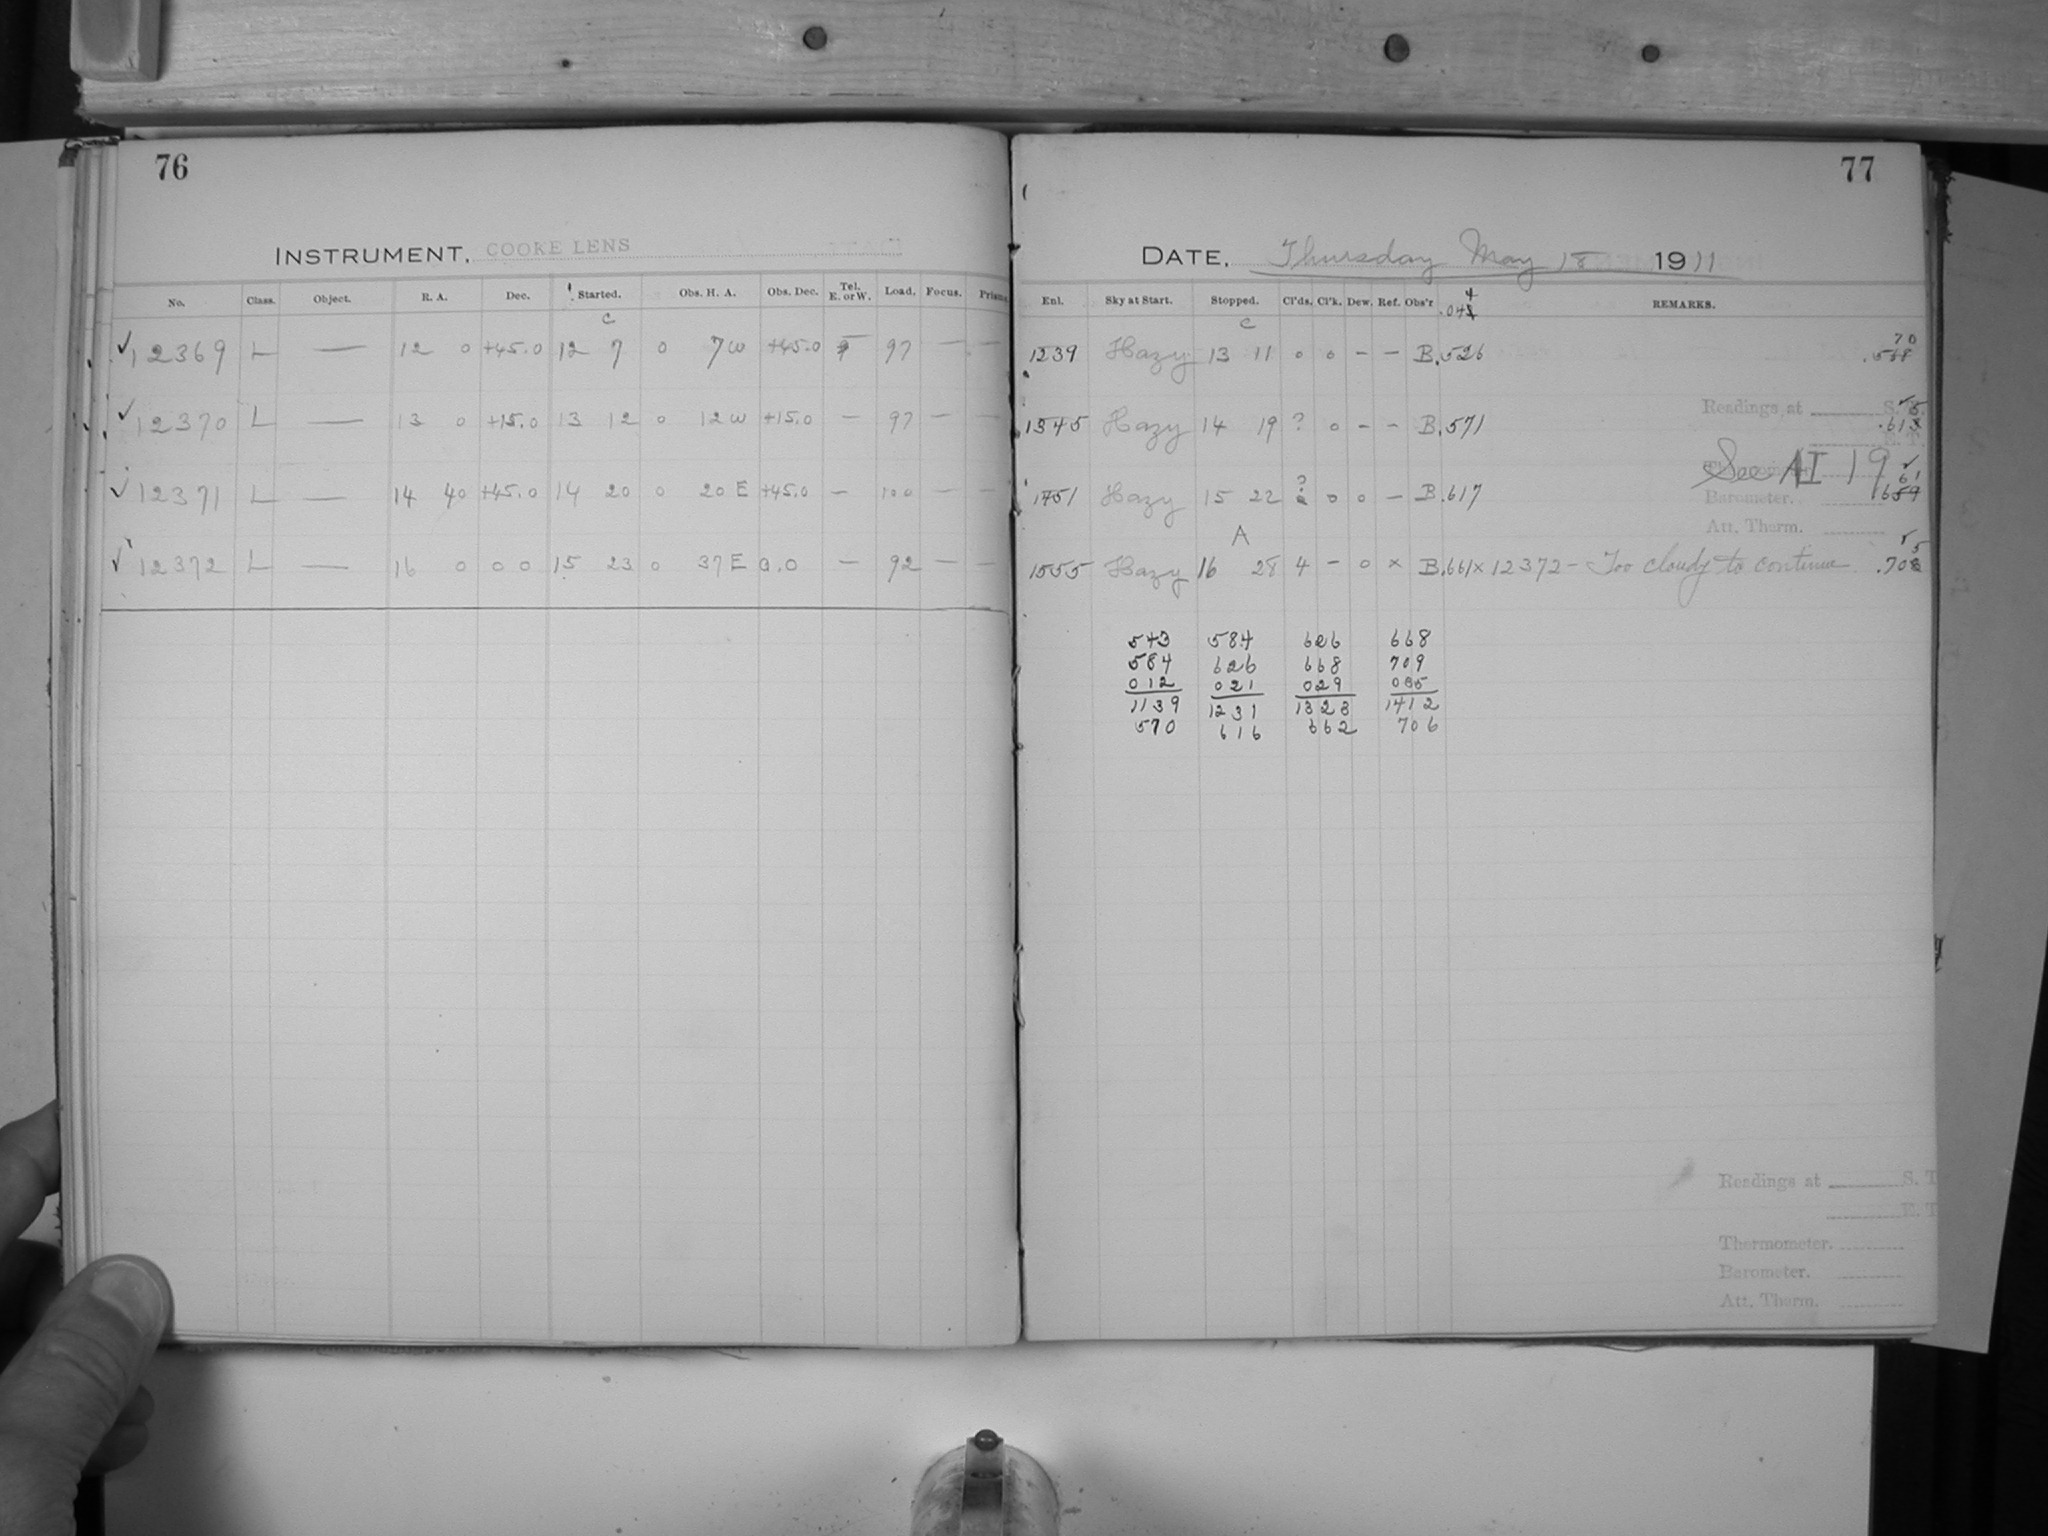 76
INSTRUMENT, COOKE LENS
No. Class. Object. R. A. Dec. Started. Obs. H. A. Obs. Dec. Tel. E. or W. Load. Focus. Prism.
c
✓12369 L — 12 0 +45.0 12 7 0 7 W +45.0 97 — —
✓12370 L — 13 0 +15.0 13 12 0 12 W +15.0 — 97 — —
✓12371 L — 14 40 +45.0 14 20 0 20 E +45.0 — 100 — —
✓12372 L — 16 0 0 0 15 23 0 37 E 0.0 — 92 — —
77
DATE, Thursday May 18 1911
Enl. Sky at Start. Stopped. Cl'ds. Cl'k. Dew. Ref. Obs'r REMARKS.
c
1239 Hazy 13 11 0 0 – – B .526 70
Readings at S. T.
1345 Hazy 14 19 ? 0 – – B .571
E. T.
See AI 19
1451 Hazy 15 22 ? 0 0 – B .617 Barometer. 61
Att. Therm.
A
1555 Hazy 16 28 4 – 0 × B .661 × 12372 – Too cloudy to continue
543 584 626 668
584 626 668 709
012 021 029 035
1139 1231 1323 1412
570 616 662 706
Readings at S. T
E. T
Thermometer.
Barometer.
Att. Therm.